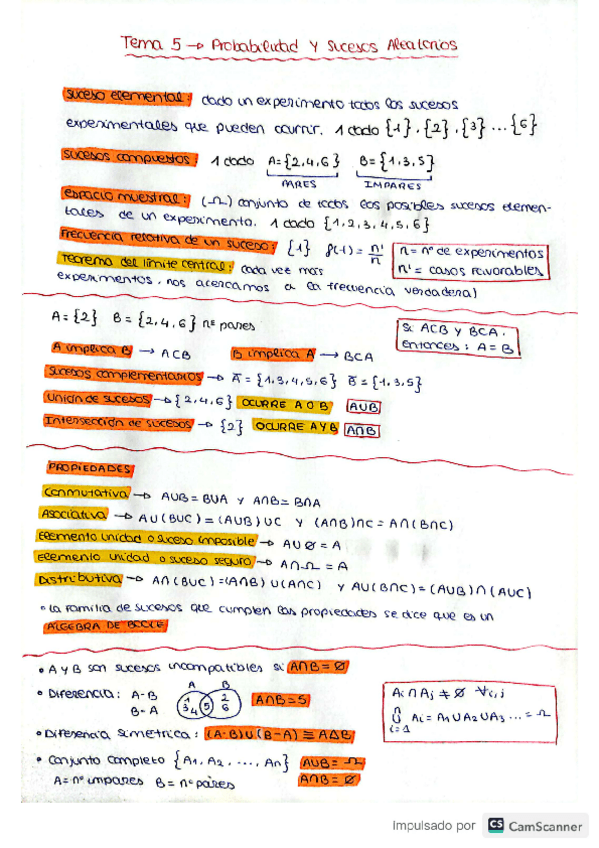 Tema 5 → Probabilidad y sucesos Aleatorios
suceso elemental: dado un experimento todos los sucesos
experimentales que pueden ocurrir. 1 dado {1}, {2}, {3} ... {6}
sucesos compuestos: 1 dado A={2,4,6} B={1,3,5}
PARES IMPARES
espacio muestral: (Ω) conjunto de todos los posibles sucesos elemen-
tales de un experimento. 1 dado {1,2,3,4,5,6}
Frecuencia relativa de un suceso: {1} f(1) = n'/n
n = nº de experimentos
n' = casos favorables
Teorema del límite central: cada vez más
experimentos, nos acercamos a la frecuencia verdadera)
A={2} B={2,4,6} nº pares
Si ACB y BCA,
entonces: A=B
A implica B → ACB B implica A → BCA
Sucesos complementarios → A̅={1,3,4,5,6} B̅={1,3,5}
Unión de sucesos → {2,4,6} OCURRE A O B AUB
Intersección de sucesos → {2} OCURRE A Y B A∩B
PROPIEDADES
Conmutativa → AUB = BUA y A∩B = B∩A
Asociativa → AU(BUC) = (AUB)UC y (A∩B)∩C = A∩(B∩C)
Elemento unidad o suceso imposible → AU∅ = A
Elemento unidad o suceso seguro → A∩Ω = A
Distributiva → A∩(BUC) = (A∩B)U(A∩C) y AU(B∩C) = (AUB)∩(AUC)
• La familia de sucesos que cumplen las propiedades se dice que es un
ALGEBRA DE BOOLE
• A y B son sucesos incompatibles si A∩B = ∅
• Diferencia: A-B
B-A
A B
1 3 4 5 2 6
A∩B=5
Ai∩Aj ≠ ∅ ∀i,j
n U i=1 Ai = A1UA2UA3 ... = Ω
• Diferencia simetrica: (A-B)U(B-A) ≡ A∆B
• Conjunto completo {A1, A2, ..., An} AUB = Ω
A = nº impares B = nº pares A∩B = ∅
Impulsado por CS CamScanner